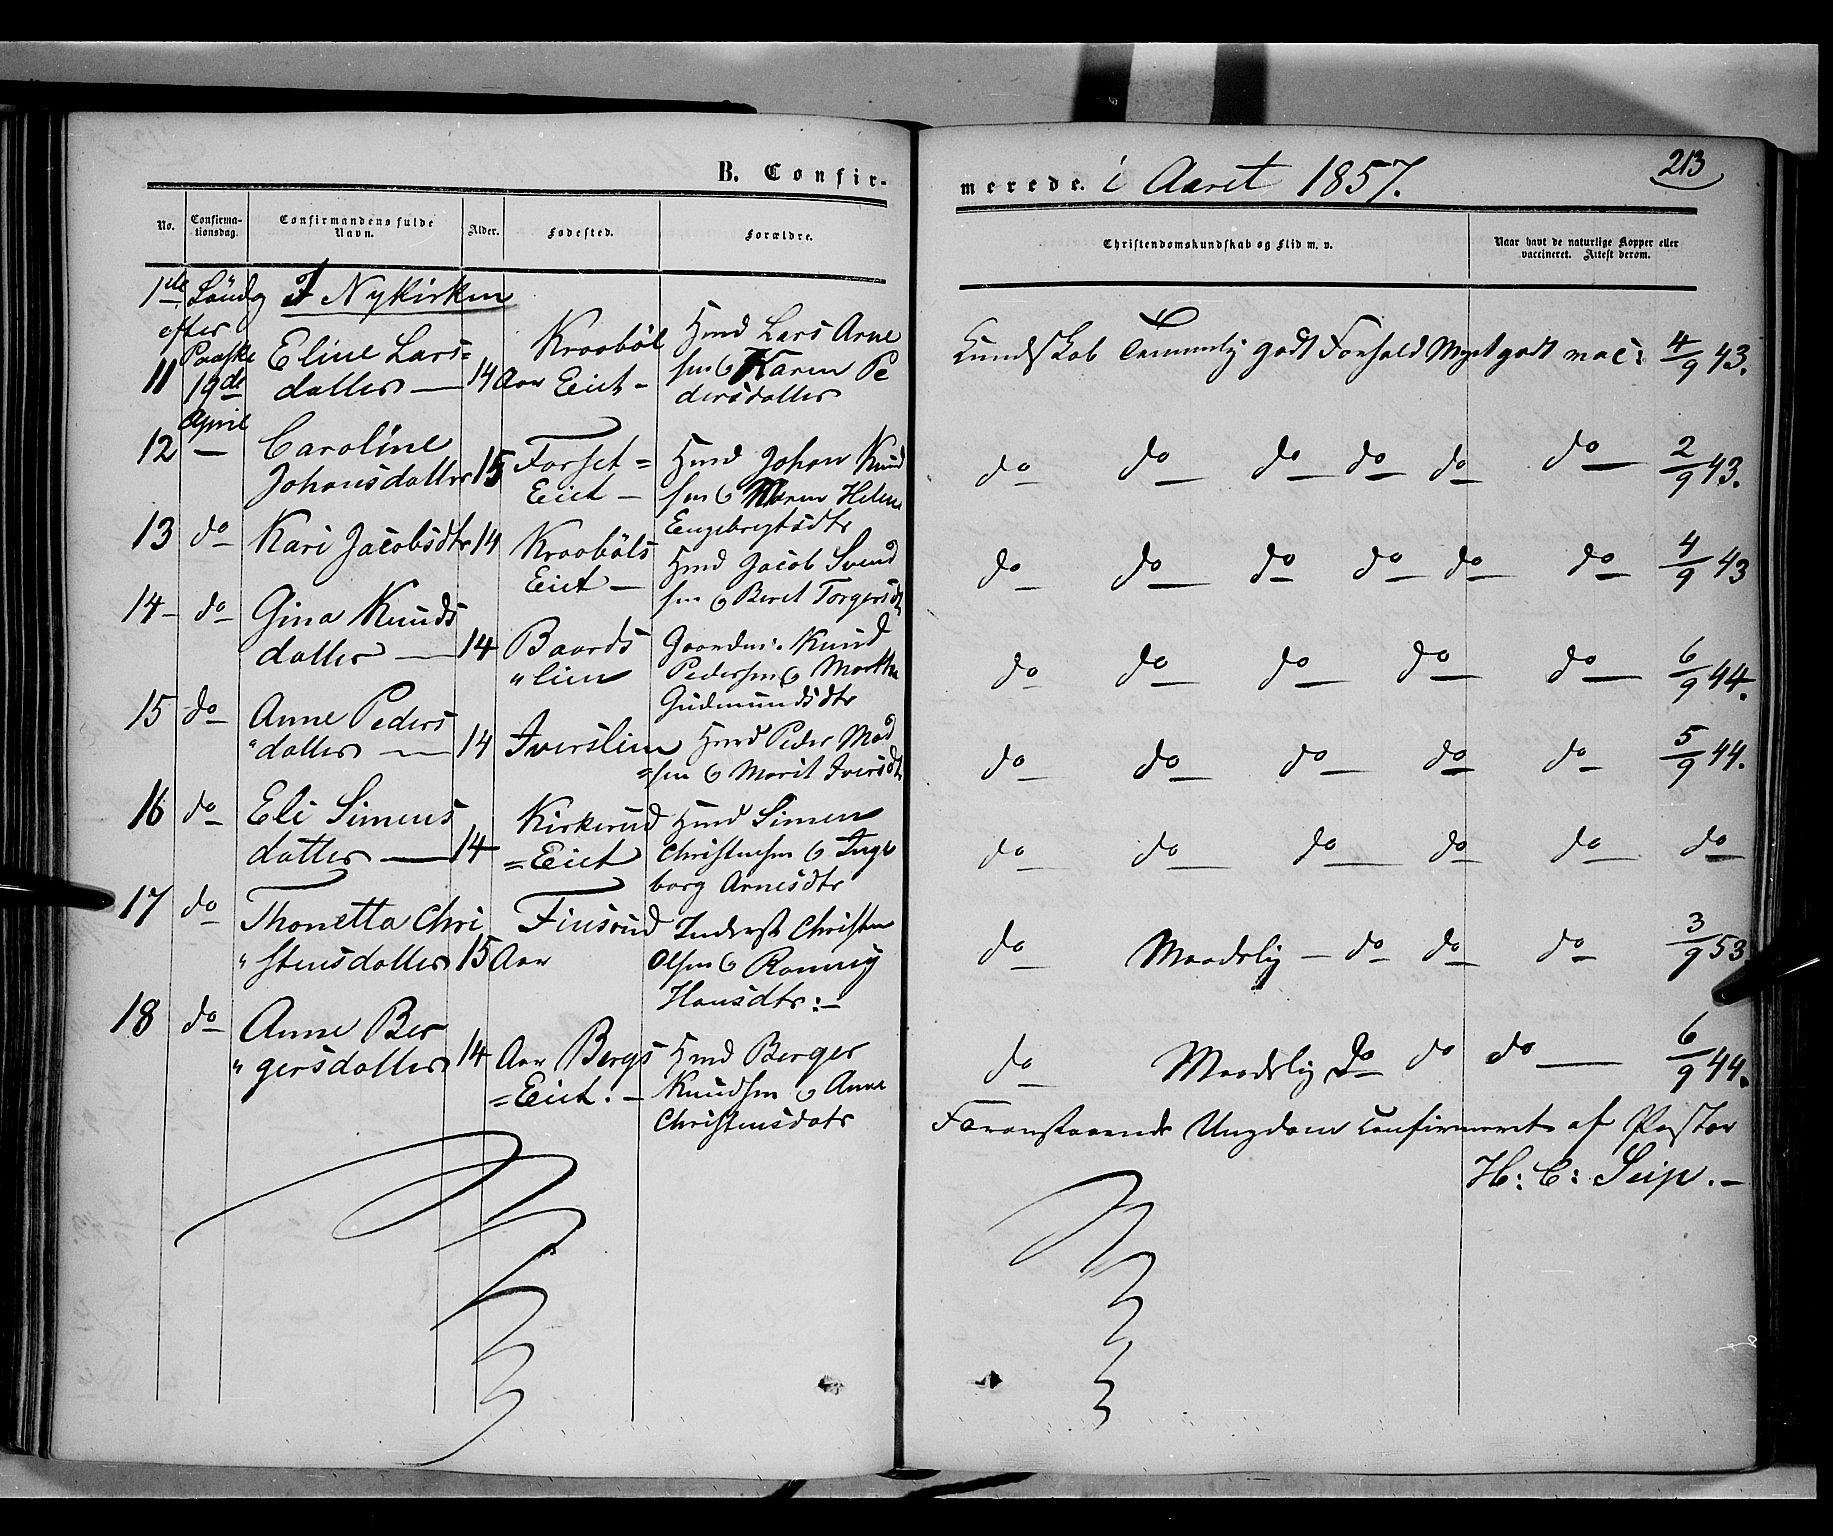 B. Confir-
merede. i Aaret 1857.
213
No.
Confirma-
tionsdag.
Confirmandens fulde
Navn.
Alder.
Fødested.
Forældre.
Christendomskundskab og Flid m. v.
Naar havt de naturlige Kopper eller
vaccineret. Attest derom.
1ste Søndg I Nykirken
efter
Paaske
19de
April
11 Eline Lars=
datter — 14 Aar
Kraabøl
Eiet -
Hmd Lars Arne
sen & Karen Pe
dersdatter
Kundskab Temmelig godt Forhold Meget godt vac: 4/9 43.
12 — Caroline
Johansdatter 15
Forset=
Eiet —
Hmd Johan Knud
sen & Maren Helene
Engebregtsdtr
do do do do do do 2/9 43.
13 do Kari Jacobsdtr 14
Kraabøls
Eiet —
Hmd Jacob Svend
sen & Beret Torgersdtr
do do do do do do 4/9 43
14- do Gina Knuds
datter — 14
Baards
"lien
Gaardm: Knud
Pedersen & Marthe
Gudmundsdtr
do do do do do 6/9 44.
15 do Anne Peders
"datter — 14
Iverslien
Hmd Peder Mad
=sen & Marit Iversdtr
do do do do do 5/9 44.
16 do Eli Simens
datter — 14
Kirkerud
=Eiet
Hmd Simen
Christensen & Inge
borg Arnesdtr
do do do do do do
17 do Thonetta Chri
"stensdatter 15 Aar
Fiusrud
Inderst Christen
Olsen & Ronnug
Hansdtr:-
do Maadelig — do do do 3/9 53
18 do Anne Ber
"gersdatter 14 Aar
Bergs
=Eiet.-
Hmd Berger
Knudsen & Anne
Christensdatr
do Maadelig do do do — 6/9 44.
Foranstaaende Ungdom confirmeret af Pastor
H: C: Seip.-